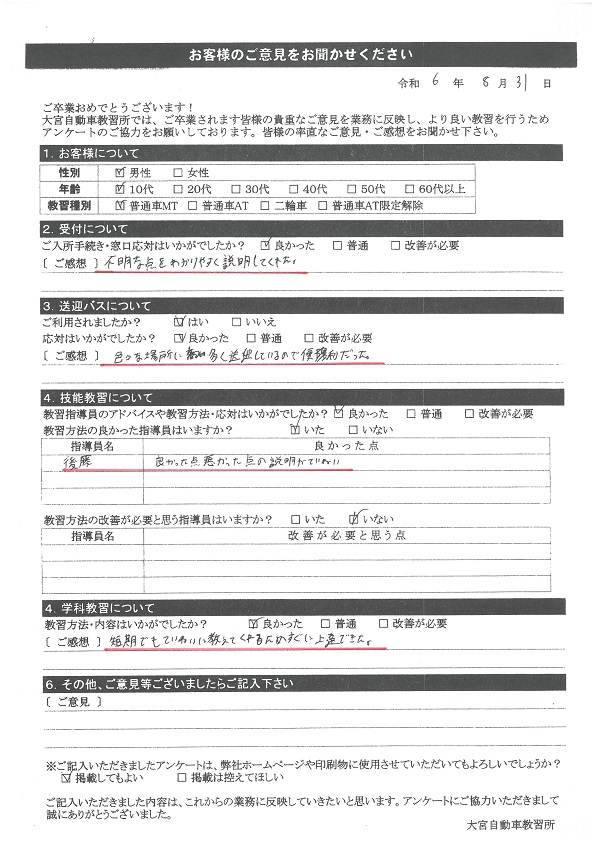 お客様のご意見をお聞かせください
令和 6 年 8 月 31 日
ご卒業おめでとうございます！
大宮自動車教習所では、ご卒業されます皆様の貴重なご意見を業務に反映し、より良い教習を行うため
アンケートのご協力をお願いしております。皆様の率直なご意見・ご感想をお聞かせ下さい。
1. お客様について
性別 ☑ 男性 □ 女性
年齢 ☑ 10代 □ 20代 □ 30代 □ 40代 □ 50代 □ 60代以上
教習種別 ☑ 普通車MT □ 普通車AT □ 二輪車 □ 普通車AT限定解除
2. 受付について
ご入所手続き・窓口応対はいかがでしたか？ ☑ 良かった □ 普通 □ 改善が必要
[ ご感想 ] 不明な点をわかりやすく説明してくれた。
3. 送迎バスについて
ご利用されましたか？ ☑ はい □ いいえ
応対はいかがでしたか？ ☑ 良かった □ 普通 □ 改善が必要
[ ご感想 ] 色々な場所に 多く送迎しているので便利だった。
4. 技能教習について
教習指導員のアドバイスや教習方法・応対はいかがでしたか？ ☑ 良かった □ 普通 □ 改善が必要
教習方法の良かった指導員はいますか？ ☑ いた □ いない
指導員名 良かった点
後藤 良かった点悪かった点の説明がていねい
教習方法の改善が必要と思う指導員はいますか？ □ いた ☑ いない
指導員名 改善が必要と思う点
4. 学科教習について
教習方法・内容はいかがでしたか？ ☑ 良かった □ 普通 □ 改善が必要
[ ご感想 ] 短期でもていねいに教えてくれるためすぐに上達できた。
6. その他、ご意見等ございましたらご記入下さい
[ ご意見 ]
※ご記入いただきましたアンケートは、弊社ホームページや印刷物に使用させていただいてもよろしいでしょうか？
☑ 掲載してもよい □ 掲載は控えてほしい
ご記入いただきました内容は、これからの業務に反映していきたいと思います。アンケートにご協力いただきまして
誠にありがとうございました。
大宮自動車教習所